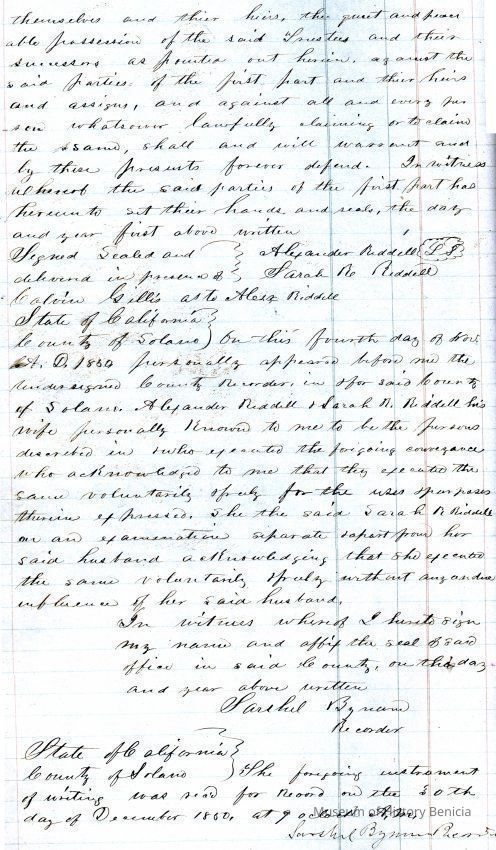 themselves and thier heirs, the quiet and peace
able possession of the said Trustees and their
successors as pointed out herein, against the
said parties of the first part and their heirs
and assigns, and against all and every per
son whatsover lawfully claiming or to claim
the same, shall and will warrant and
by these presents forever defend. In witness
whereof the said parties of the first part has
hereunto set their hands and seals, the day
and year first above written
Signed Sealed and } Alexander Riddell (L S)
delivered in presence of } Sarah R Riddell
Calvin Gillis as to Alexr Riddell
State of California }
County of Solano ) On this fourth day of Nov.
A. D. 1850 personally appeared before me the
Undersigned County Recorder, in & for said County
of Solano. Alexander Riddell & Sarah R. Riddell his
wife personally Known to me to be the persons
described in & who executed the forgoing conveyance
who acknowledged to me that they executed the
same voluntarily & freely for the uses & purposes
therein expressed. She the said Sarah R Riddell
on an examination separate & apart from her
said husband acknowledging that she executed
the same voluntarily & freely without any undue
influence of her said husband.
In witness whereof I hereto sign
my name and affix the seal of said
office in said County, on the day
and year above written
Sarshel Bynum
Recorder
State of California }
County of Solano ) The forgoing instrument
of writing was read for Record on the 30th
day of December 1850. at 9 oclock
Sarshel Bynum Recorder
Museum of History Benicia